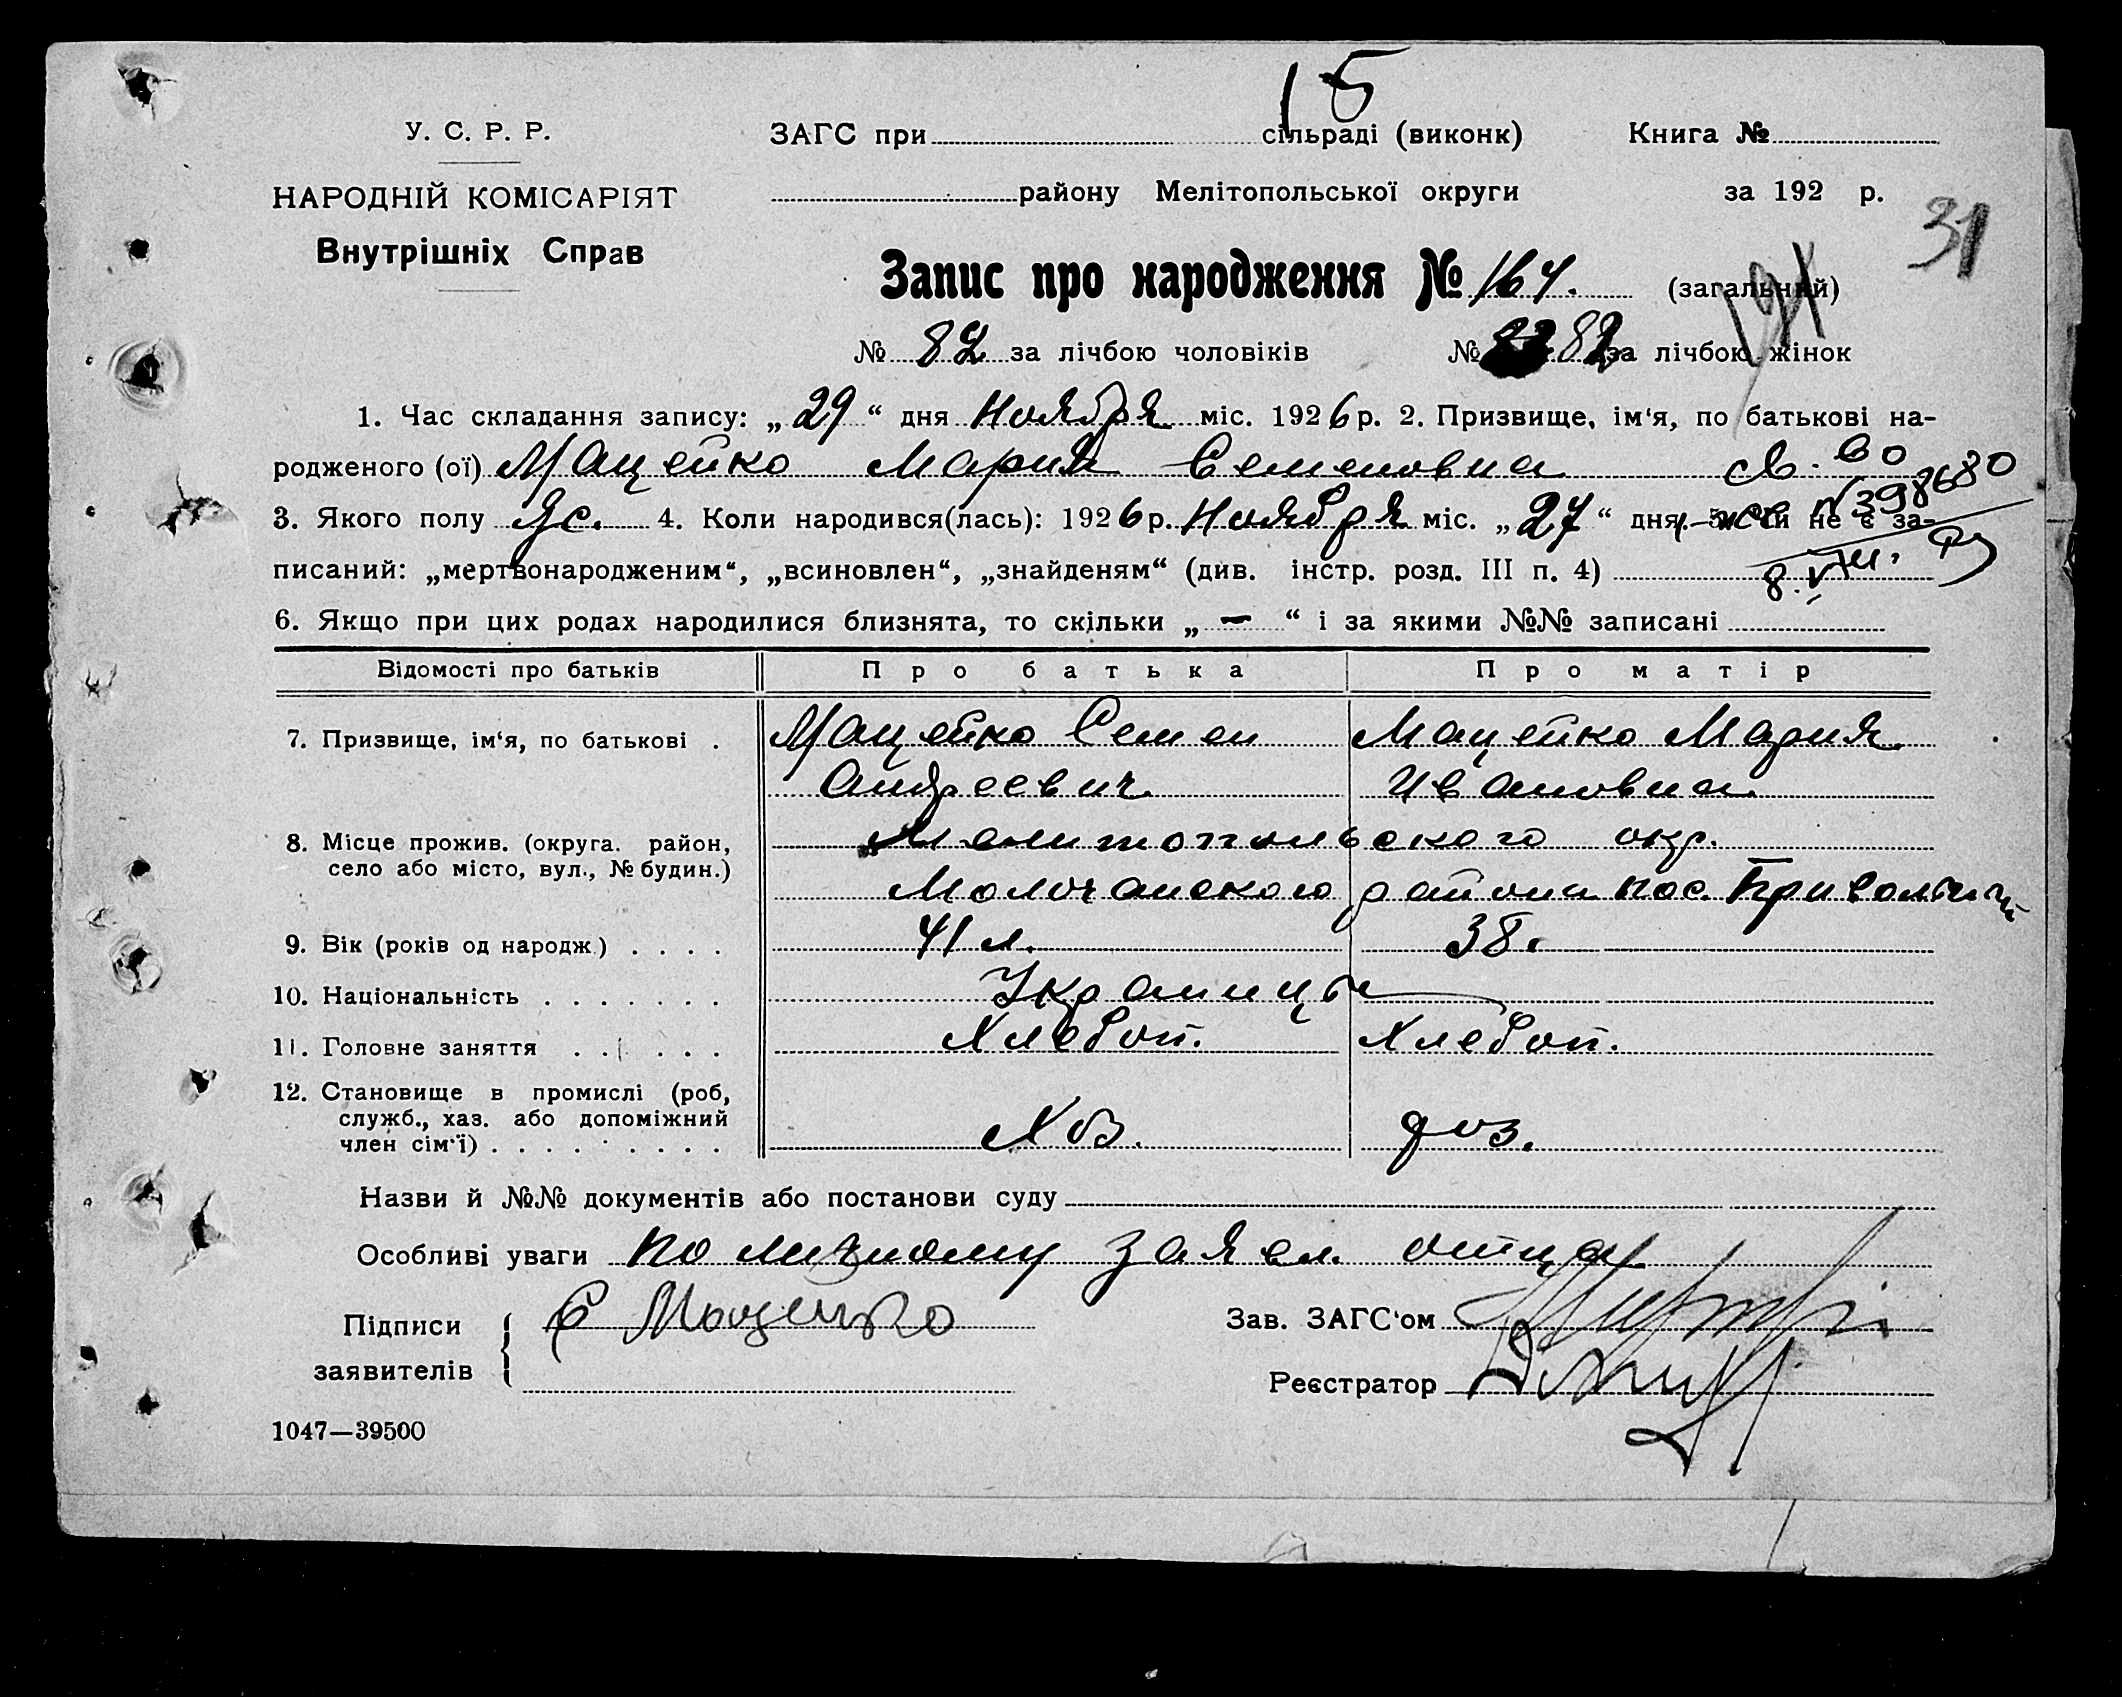 15
У. С. Р. Р. ЗАГС при сільраді (виконк) Книга №
НАРОДНІЙ КОМІСАРІЯТ району Мелітопольської округи за 192 р.
31
Внутрішніх Справ
Запис про народження № 164. (загальний)
№ 82 за лічбою чоловіків № 82 за лічбою жінок
1. Час складання запису: „ 29 “ дня Ноября міс. 1926 р. 2. Призвище, ім‘я, по батькові на-
родженого (ої) Мацейко Мария Семеновна
св. во
N398680
3. Якого полу жс. 4. Коли народився(лась): 1926 р. Ноября міс. „ 27 “ дня. 5. Чи не є за-
писаний: „мертвонародженим“, „всиновлен“, „знайденям“ (див. інстр. розд. III п. 4)
8. VIII.
6. Якщо при цих родах народилися близнята, то скільки „ — “ і за якими №№ записані
Відомості про батьків Про батька Про матір
7. Призвище, ім‘я, по батькові . Мацейко Семен Мацейко Мария
Андреевич Ивановна
8. Місце прожив. (округа. район, Мелитопольского окр.
село або місто, вул., № будин.) Молочанского района пос. Привольный
9. Вік (років од народж.) . . . . 41 л. 38.
10. Національність . . . . . . . Украинцы
11. Головне заняття . . . . . Хлебоп. Хлебоп.
12. Становище в промислі (роб,
служб., хаз. або допоміжний
член сім‘ї) . . . . . . . . Хоз. доз.
Назви й №№ документів або постанови суду
Особливі уваги по личному заявл. отца
Підписи С Мацейко Зав. ЗАГС‘ом
заявителів Реєстратор
1047—39500